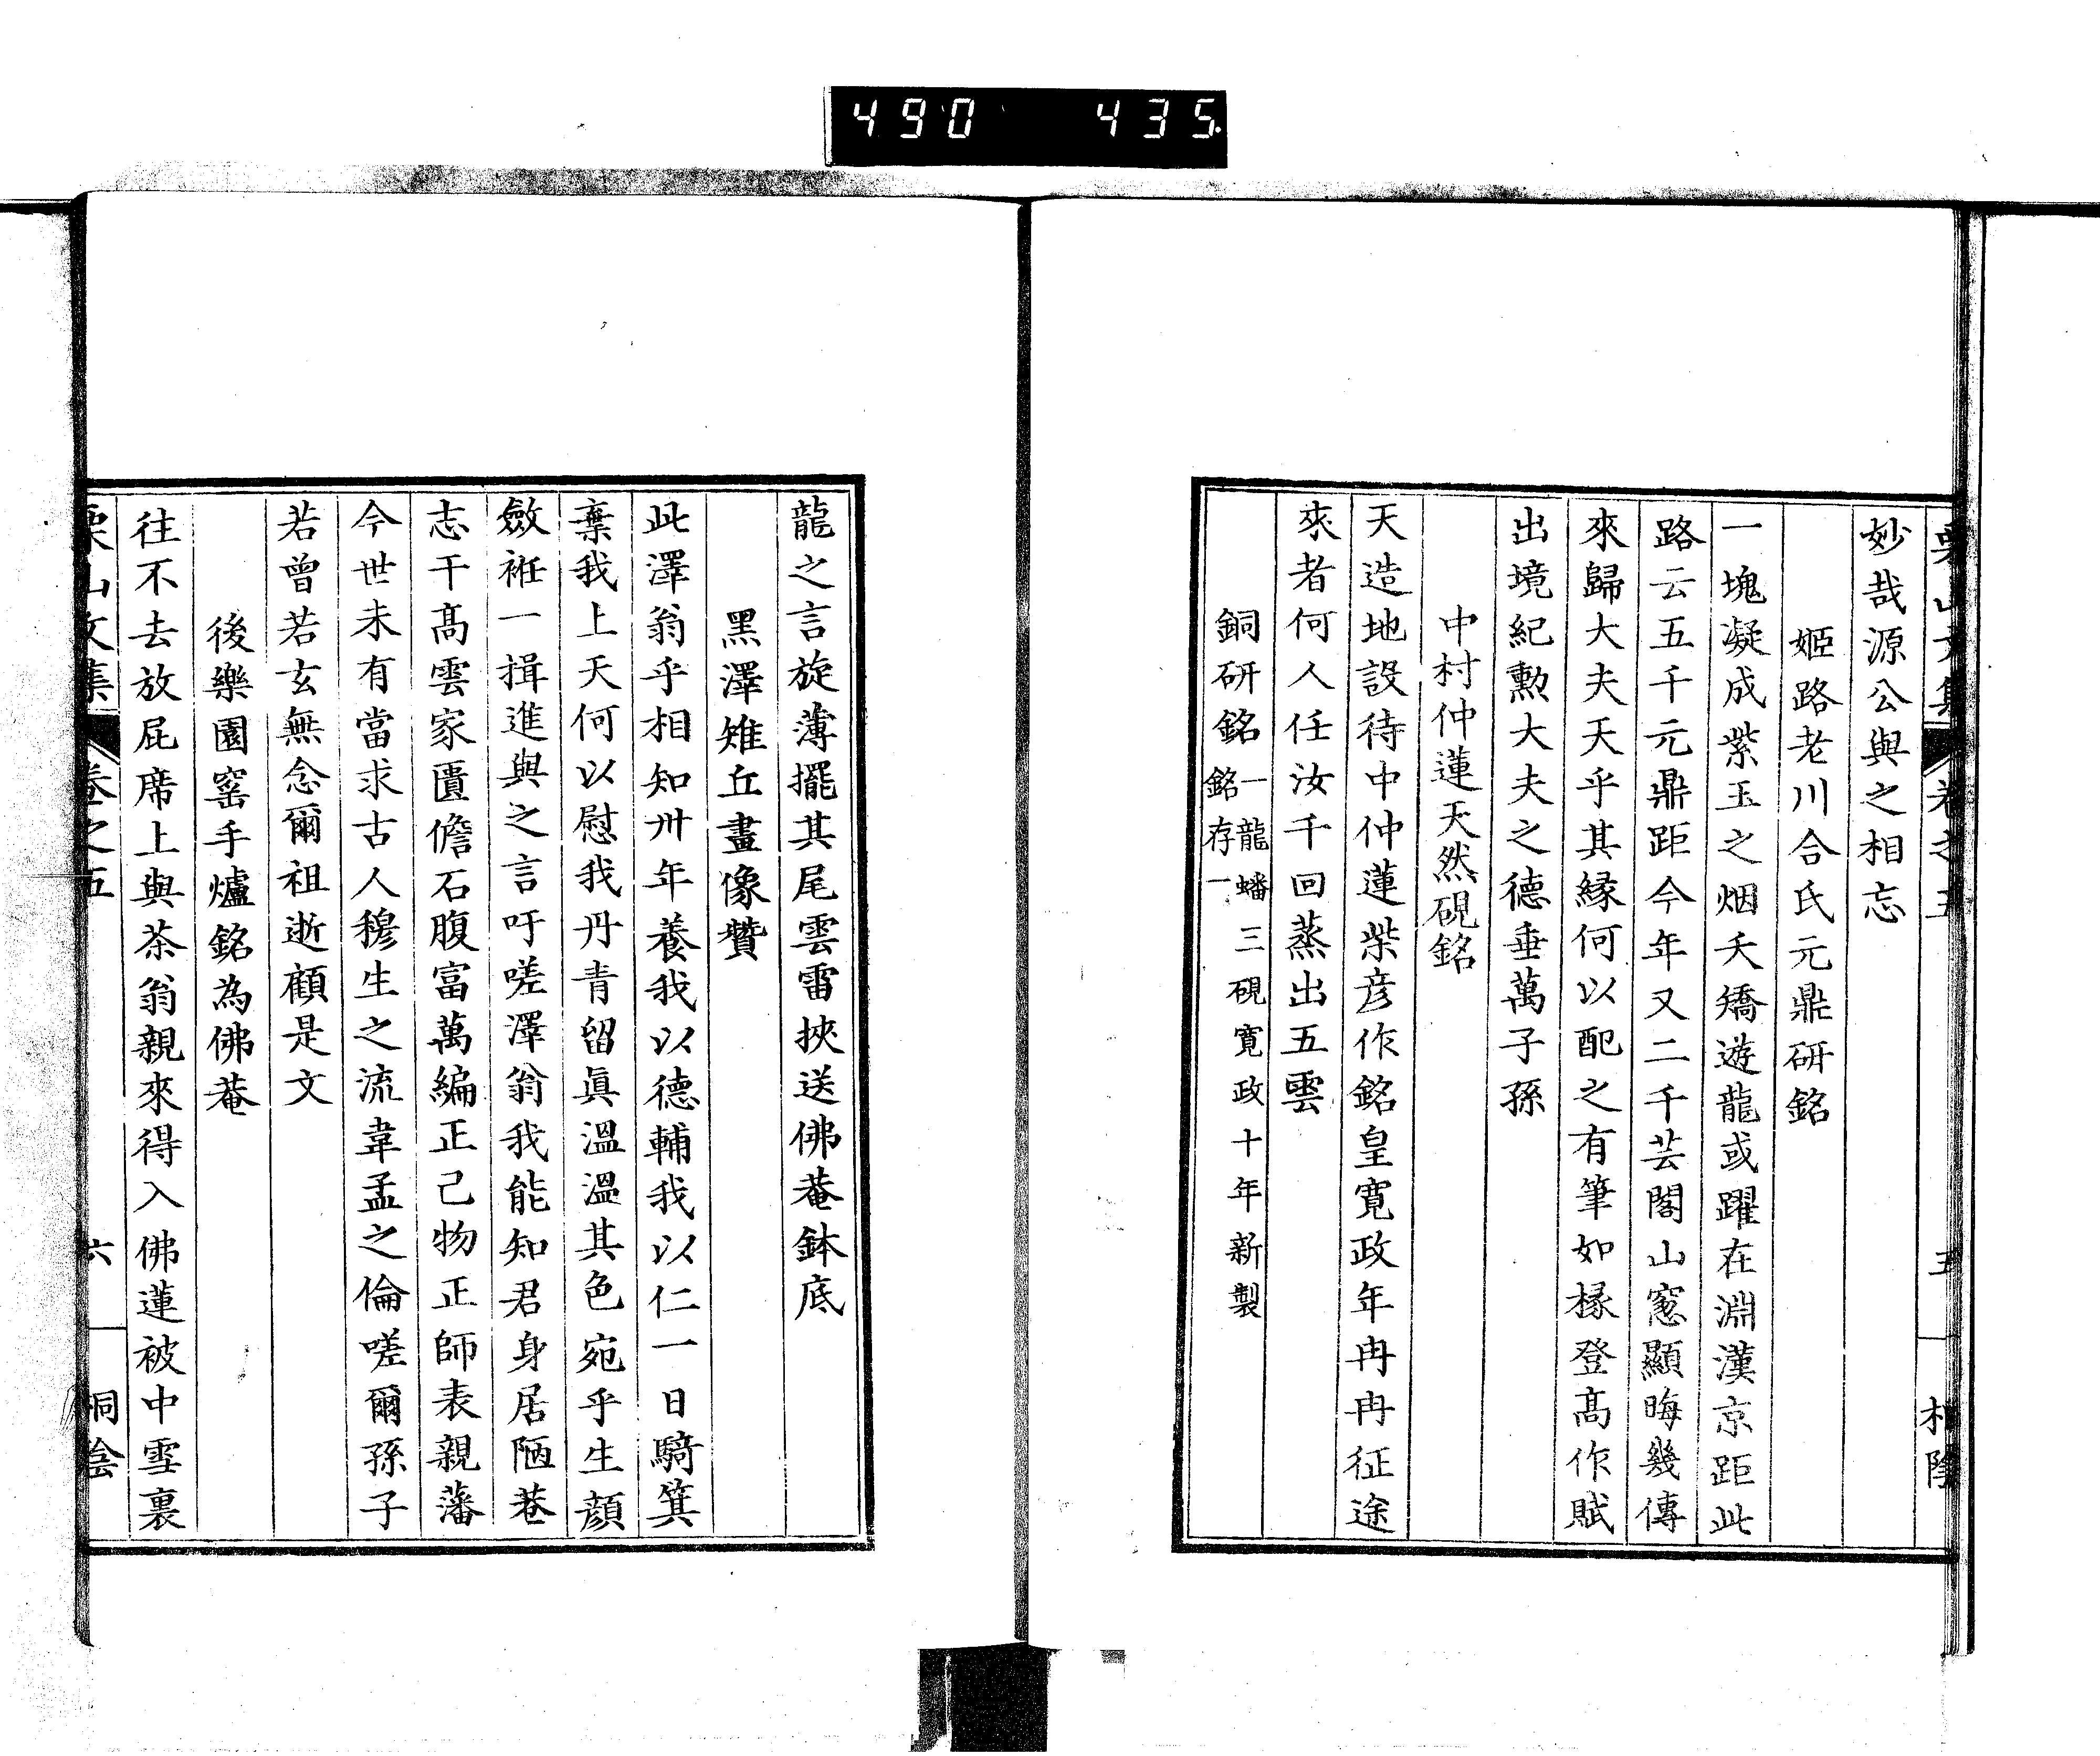 490 435.
栗山文集 卷之五 五
妙哉源公與之相忘
姬路老川合氏元鼎硏銘
一塊凝成紫玉之烟夭矯遊龍或躍在淵漢京距此
路云五千元鼎距今年又二千芸閣山窓顯晦幾傳
來歸大夫天乎其緣何以配之有筆如椽登髙作賦
出境紀勲大夫之德垂萬子孫
中村仲蓮天然硯銘
天造地設待中仲蓮柴彦作銘皇寛政年冉冉征途
來者何人任汝千回蒸出五雲
銅硏銘 一龍蟠三硯寛政十年新製
銘存一
龍之言旋薄擺其尾雲雷挾送佛菴鉢底
黑澤雉丘畫像贊
此澤翁乎相知卅年養我以德輔我以仁一日騎箕
棄我上天何以慰我丹青留眞溫溫其色宛乎生顔
斂袵一揖進與之言吁嗟澤翁我能知君身居陋巷
志干髙雲家匱儋石腹富萬編正己物正師表親藩
今世未有當求古人穆生之流韋孟之倫嗟爾孫子
若曾若玄無念爾祖逝顧是文
後樂園窰手爐銘為佛菴
往不去放屁席上與茶翁親來得入佛蓮被中雪裏
栗山文集 卷之五 六 桐陰